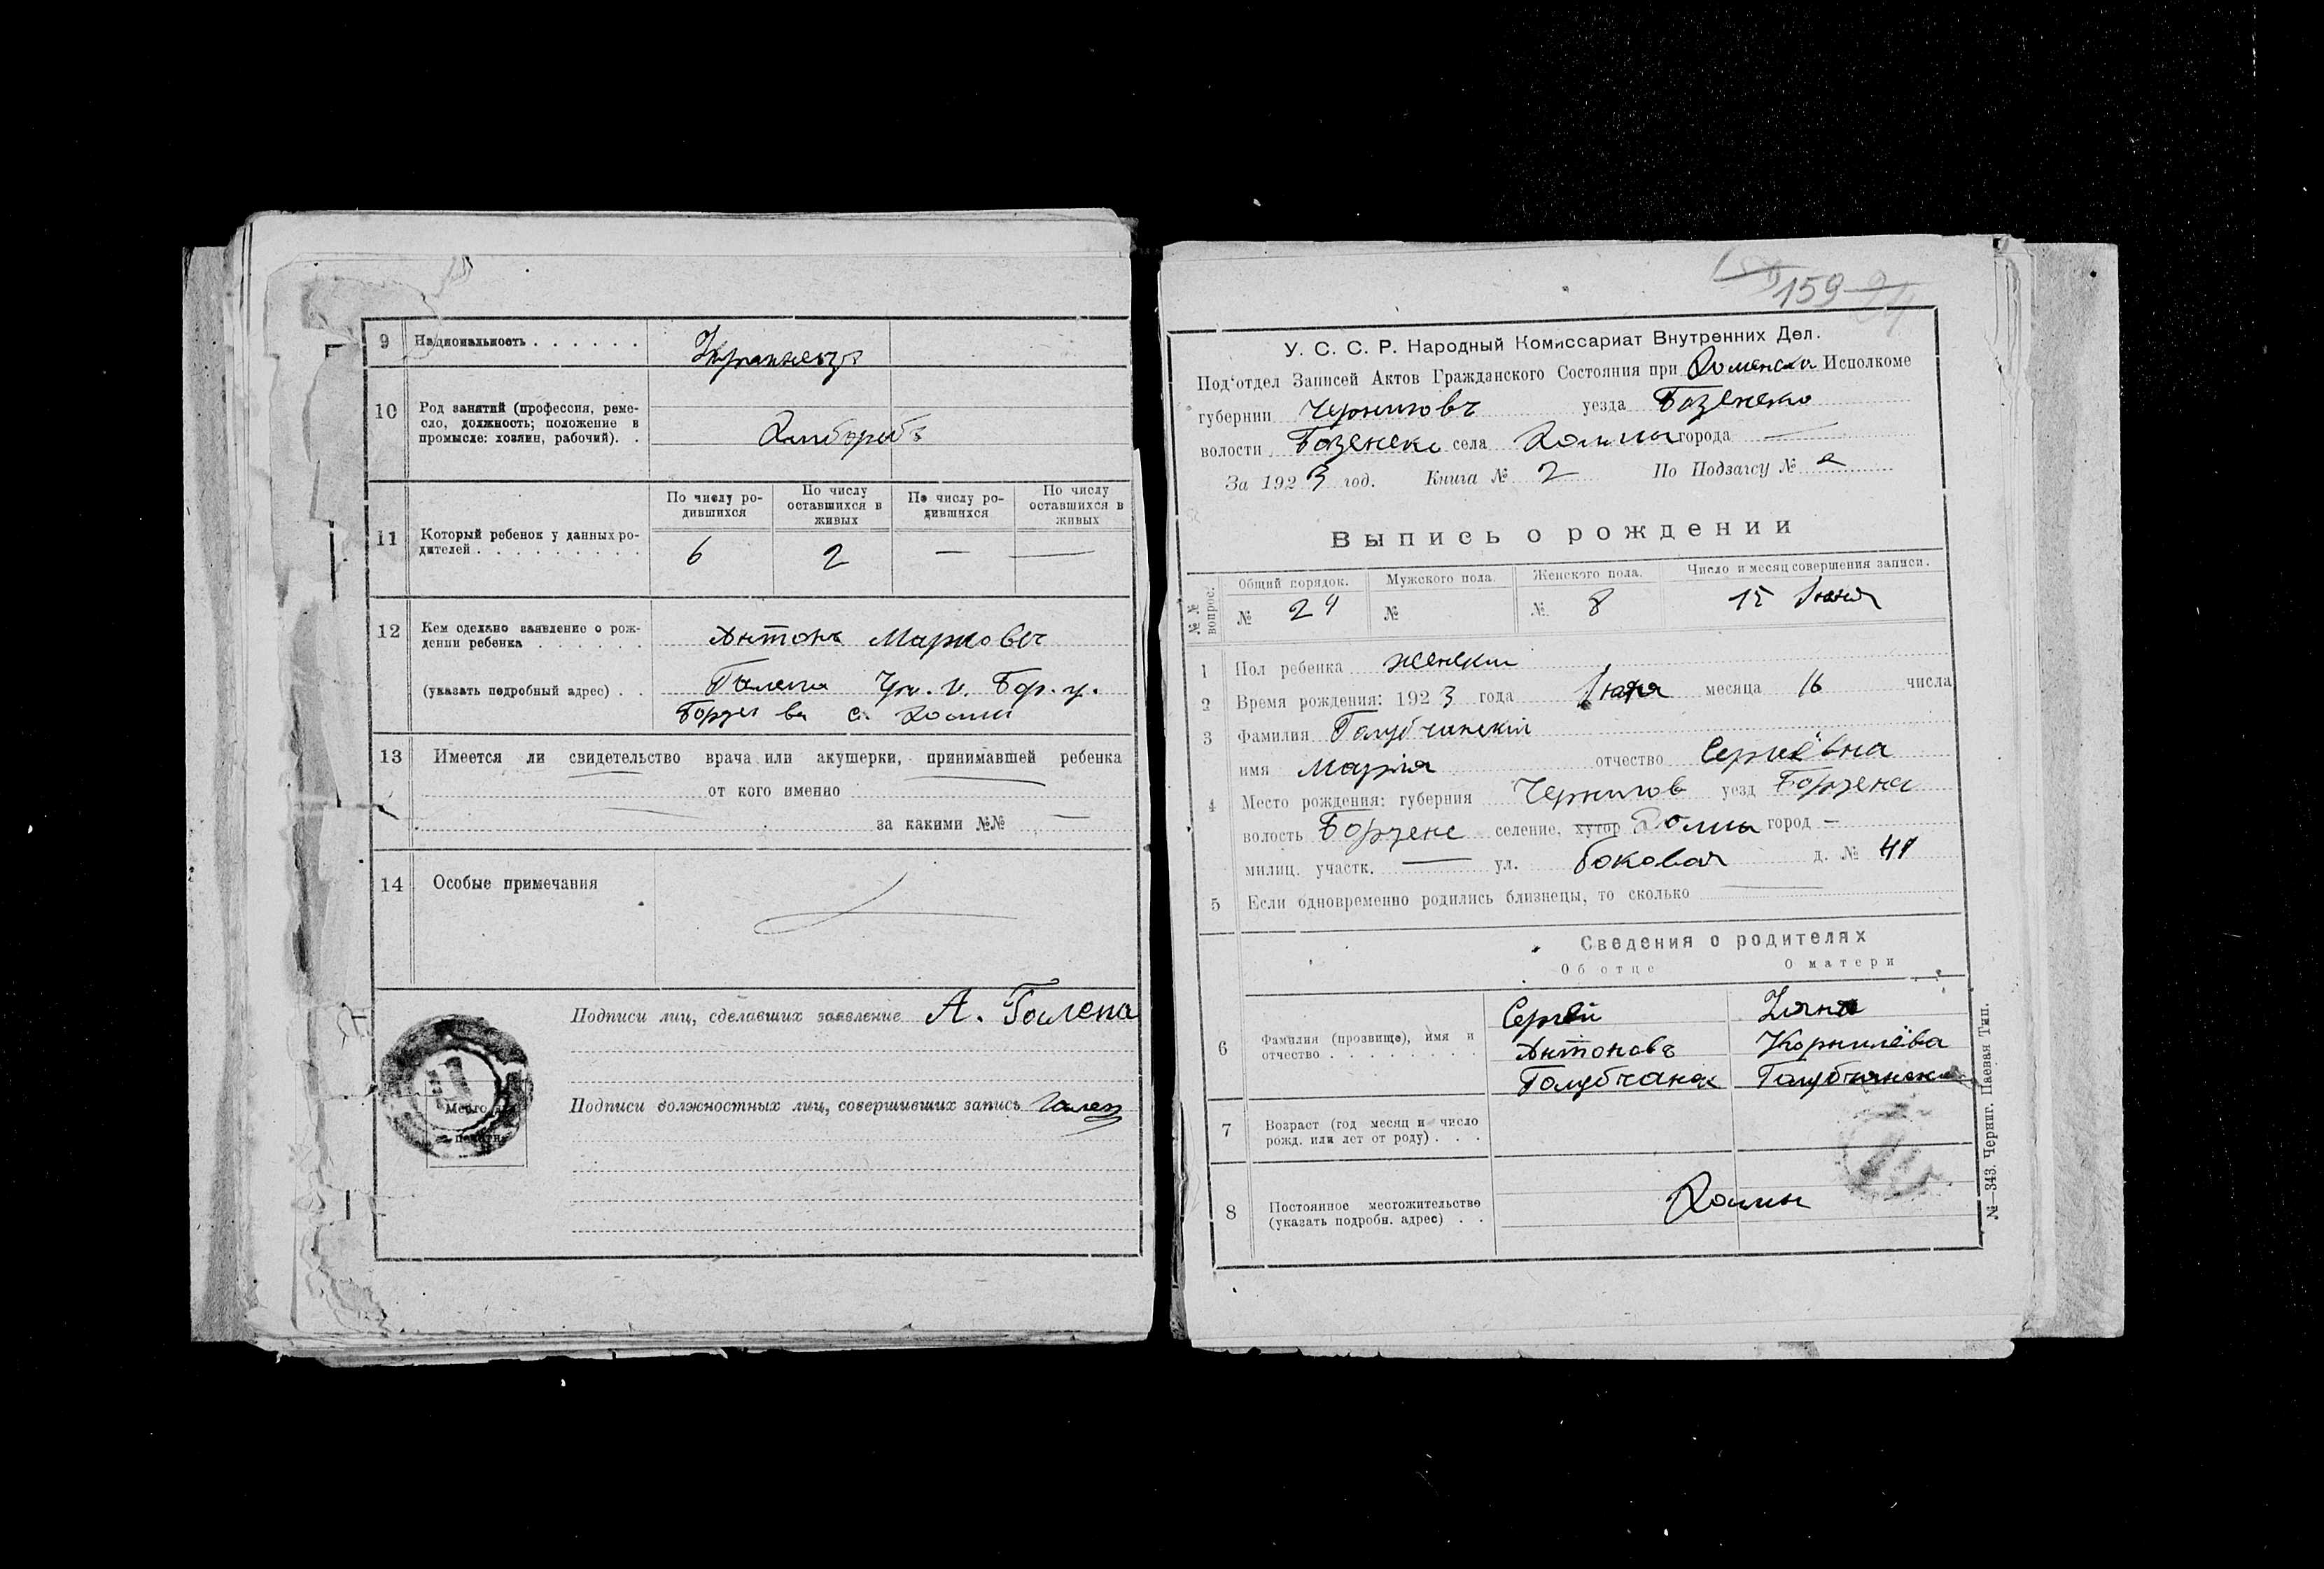 9 Национальность . . . . . .
Украинецъ
10 Род занятий (профессия, реме-
сло, должность; положение в
промысле: хозяин, рабочий). .
Хлиборобъ
По числу ро-
дившихся
По числу
оставшихся в
живых
По числу ро-
дившихся
По числу
оставшихся в
живых
11 Который ребенок у данных ро-
дителей . . . . . . . . .
6 2 — —
12 Кем сделано заявление о рож-
дении ребенка . . . . . .
Антонъ Марковъ
(указать подробный адрес) . .
Галета Чрн. г. Бор. у.
с. Холми
13 Имеется ли свидетельство врача или акушерки, принимавшей ребенка
от кого именно
за какими №№ —
14 Особые примечания
Подписи лиц, сделавших заявление А. Галета
Подписи должностных лиц, совершивших запись
Место для
печати.
159
У. С. С. Р. Народный Комиссариат Внутренних Дел.
Под'отдел Записей Актов Гражданского Состояния при Исполкоме
губернии Черниговъ уезда
волости села Холмы города —
За 1923 год. Книга № 2 По Подзагсу №
Выпись о рождении
№№ вопрос. Общий порядок. Мужского пола. Женского пола. Число и месяц совершения записи.
№ № № 8 15
1 Пол ребенка женский
2 Время рождения: 1923 года месяца 16 числа
3 Фамилия Голубчинский
имя Марія отчество Сергіёвна
4 Место рождения: губерния Чернигов уезд Борзена
волость Борзенс селение, хутор Холмы город —
милиц. участк. — ул. Боковая д. № 41
5 Если одновременно родились близнецы, то сколько
Сведения о родителях
Об отце О матери
6 Фамилия (прозвище), имя и
отчество . . . . . . . .
Сергей
Антоновъ Корнилёва
7 Возраст (год месяц и число
рожд. или лет от роду) . . .
8 Постоянное местожительство
(указать подробн. адрес) . .
Холмы
№—343. Черниг. Паевая Тип.